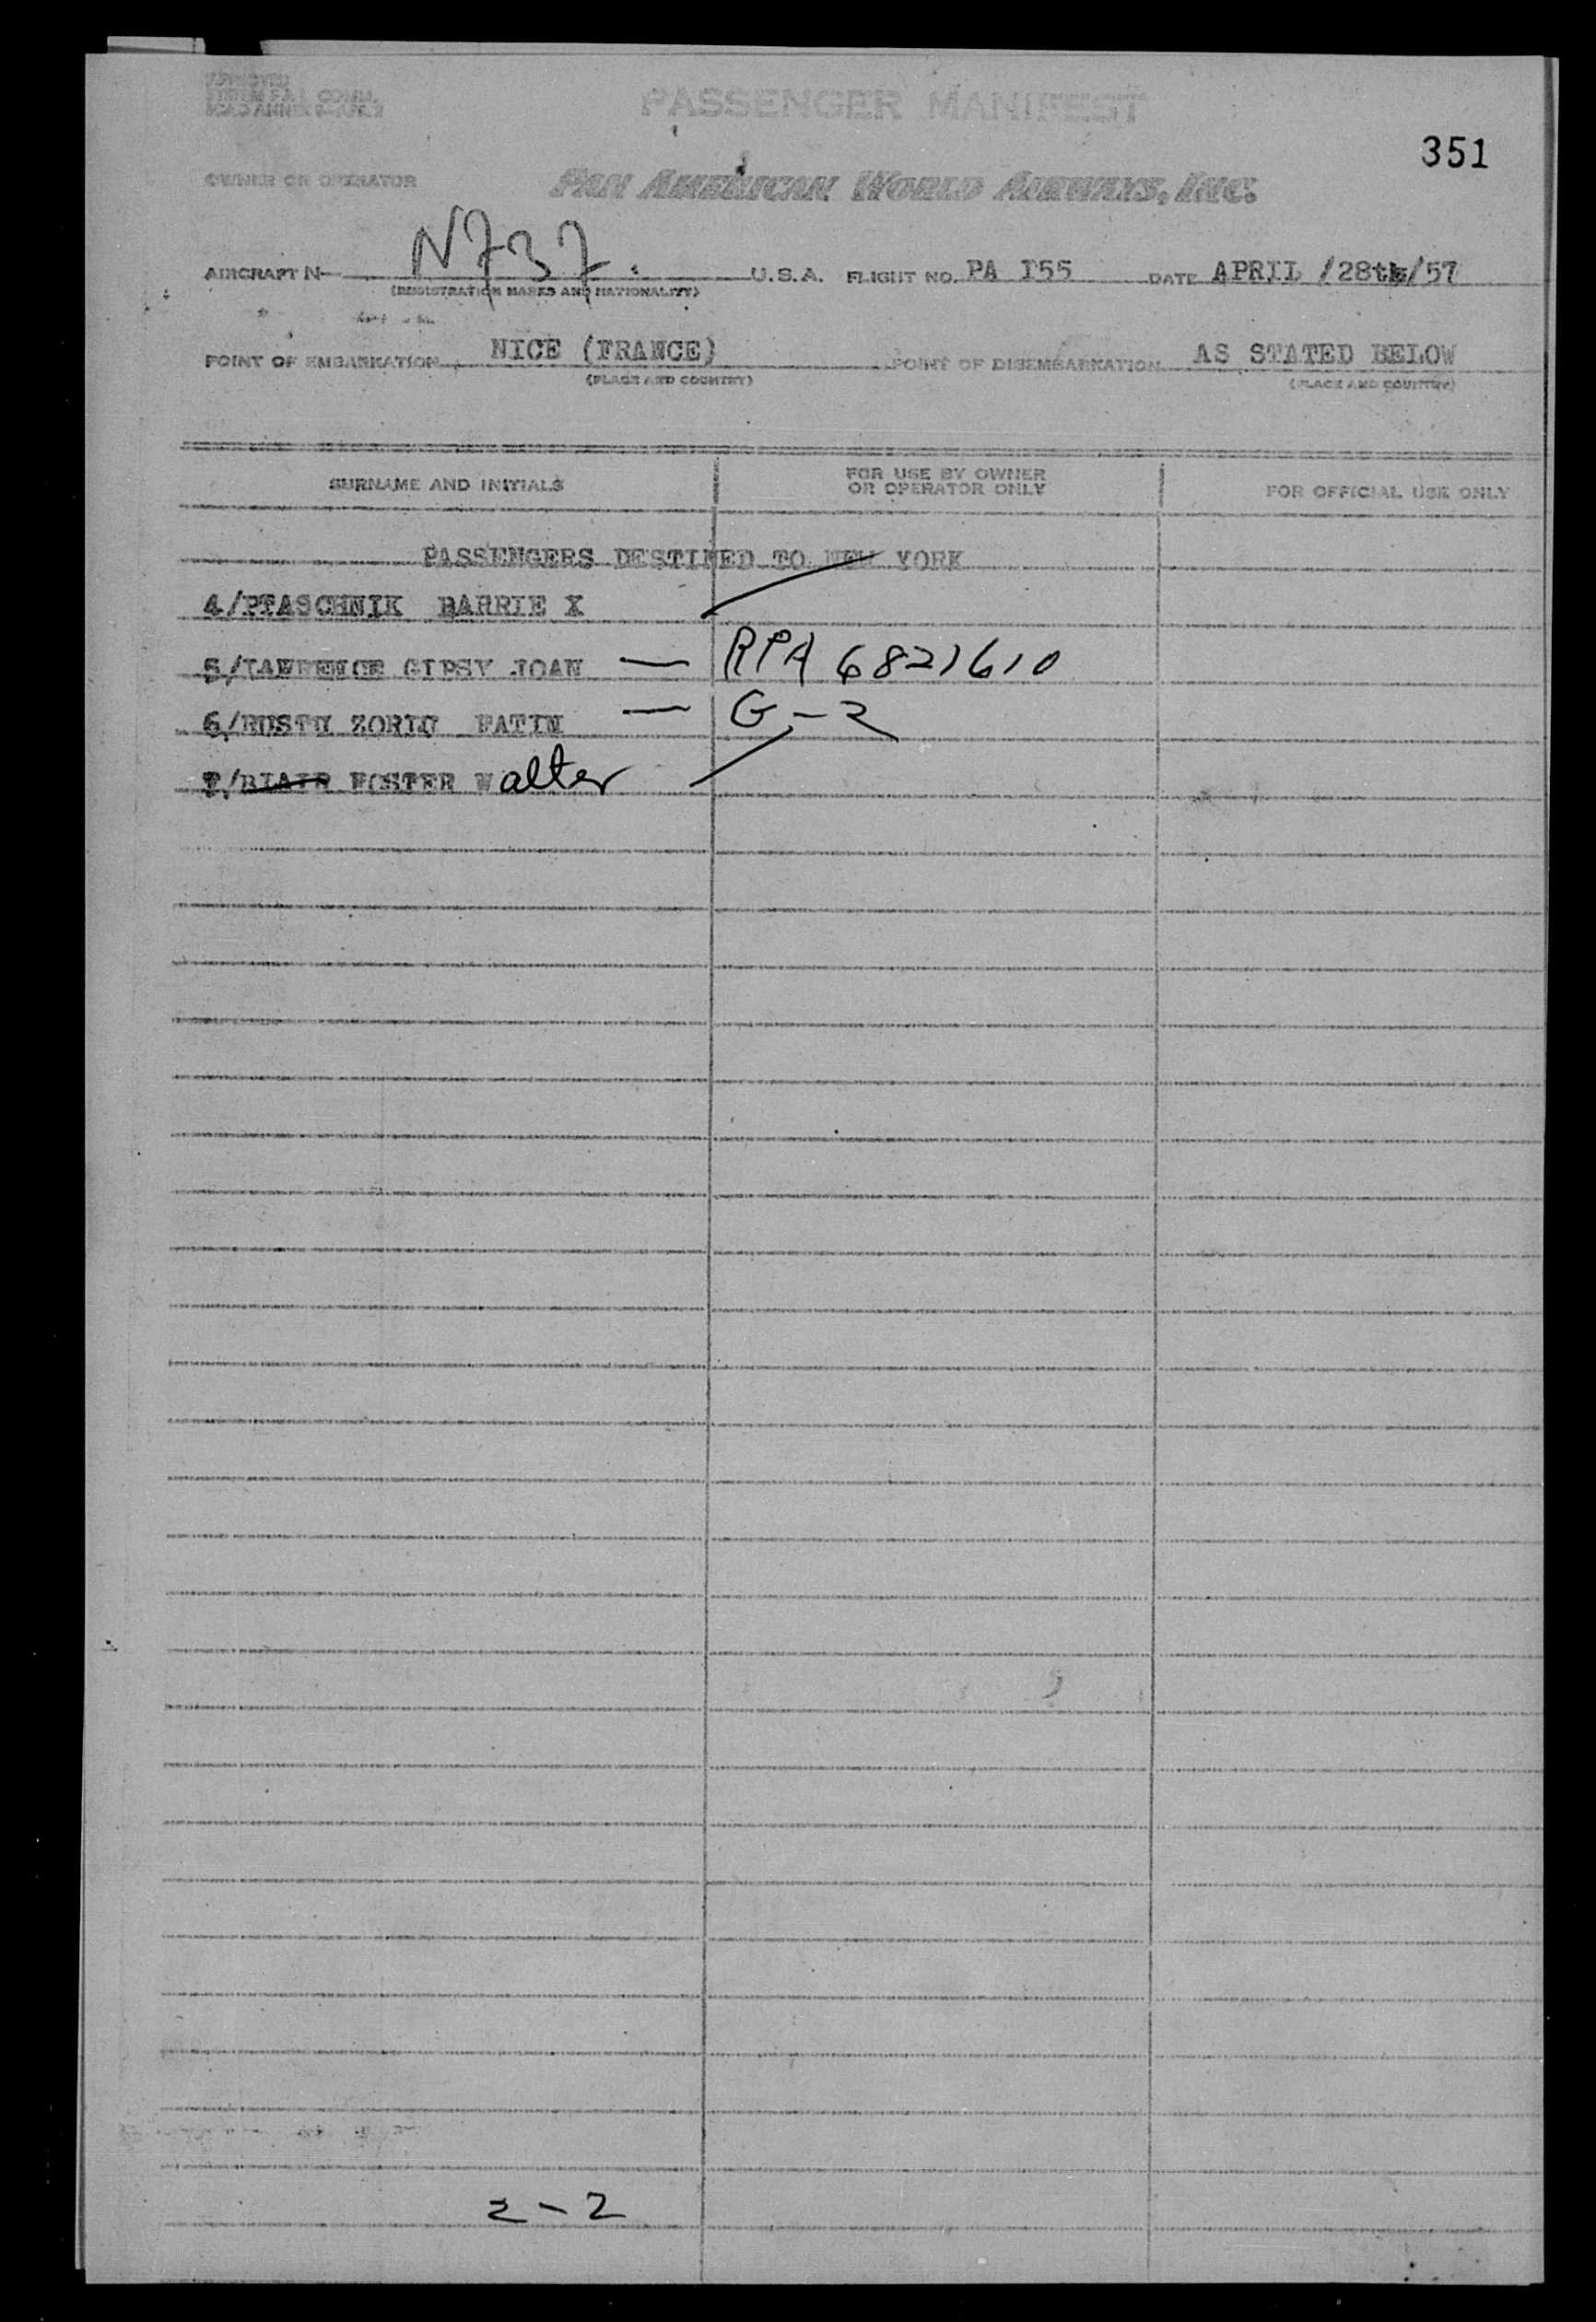 PASSENGER MANIFEST
351
OWNER OR OPERATOR PAN AMERICAN WORLD AIRWAYS, INC.
AIRCRAFT N N737. U.S.A. FLIGHT NO. PA I55 DATE APRIL /28th/57
(REGISTRATION MARKS AND NATIONALITY)
POINT OF EMBARKATION NICE (FRANCE) POINT OF DISEMBARKATION AS STATED BELOW
(PLACE AND COUNTRY) (PLACE AND COUNTRY)
SURNAME AND INITIALS FOR USE BY OWNER OR OPERATOR ONLY FOR OFFICIAL USE ONLY
PASSENGERS DESTINED TO NEW YORK
4/PTASCHNIK BARRIE X
5/LAWRENCE GIPSY JOAN — RPA 6821610
6/RUSTU ZORLU FATIN — G-2
7/BLAIR FOSTER Walter
2-2